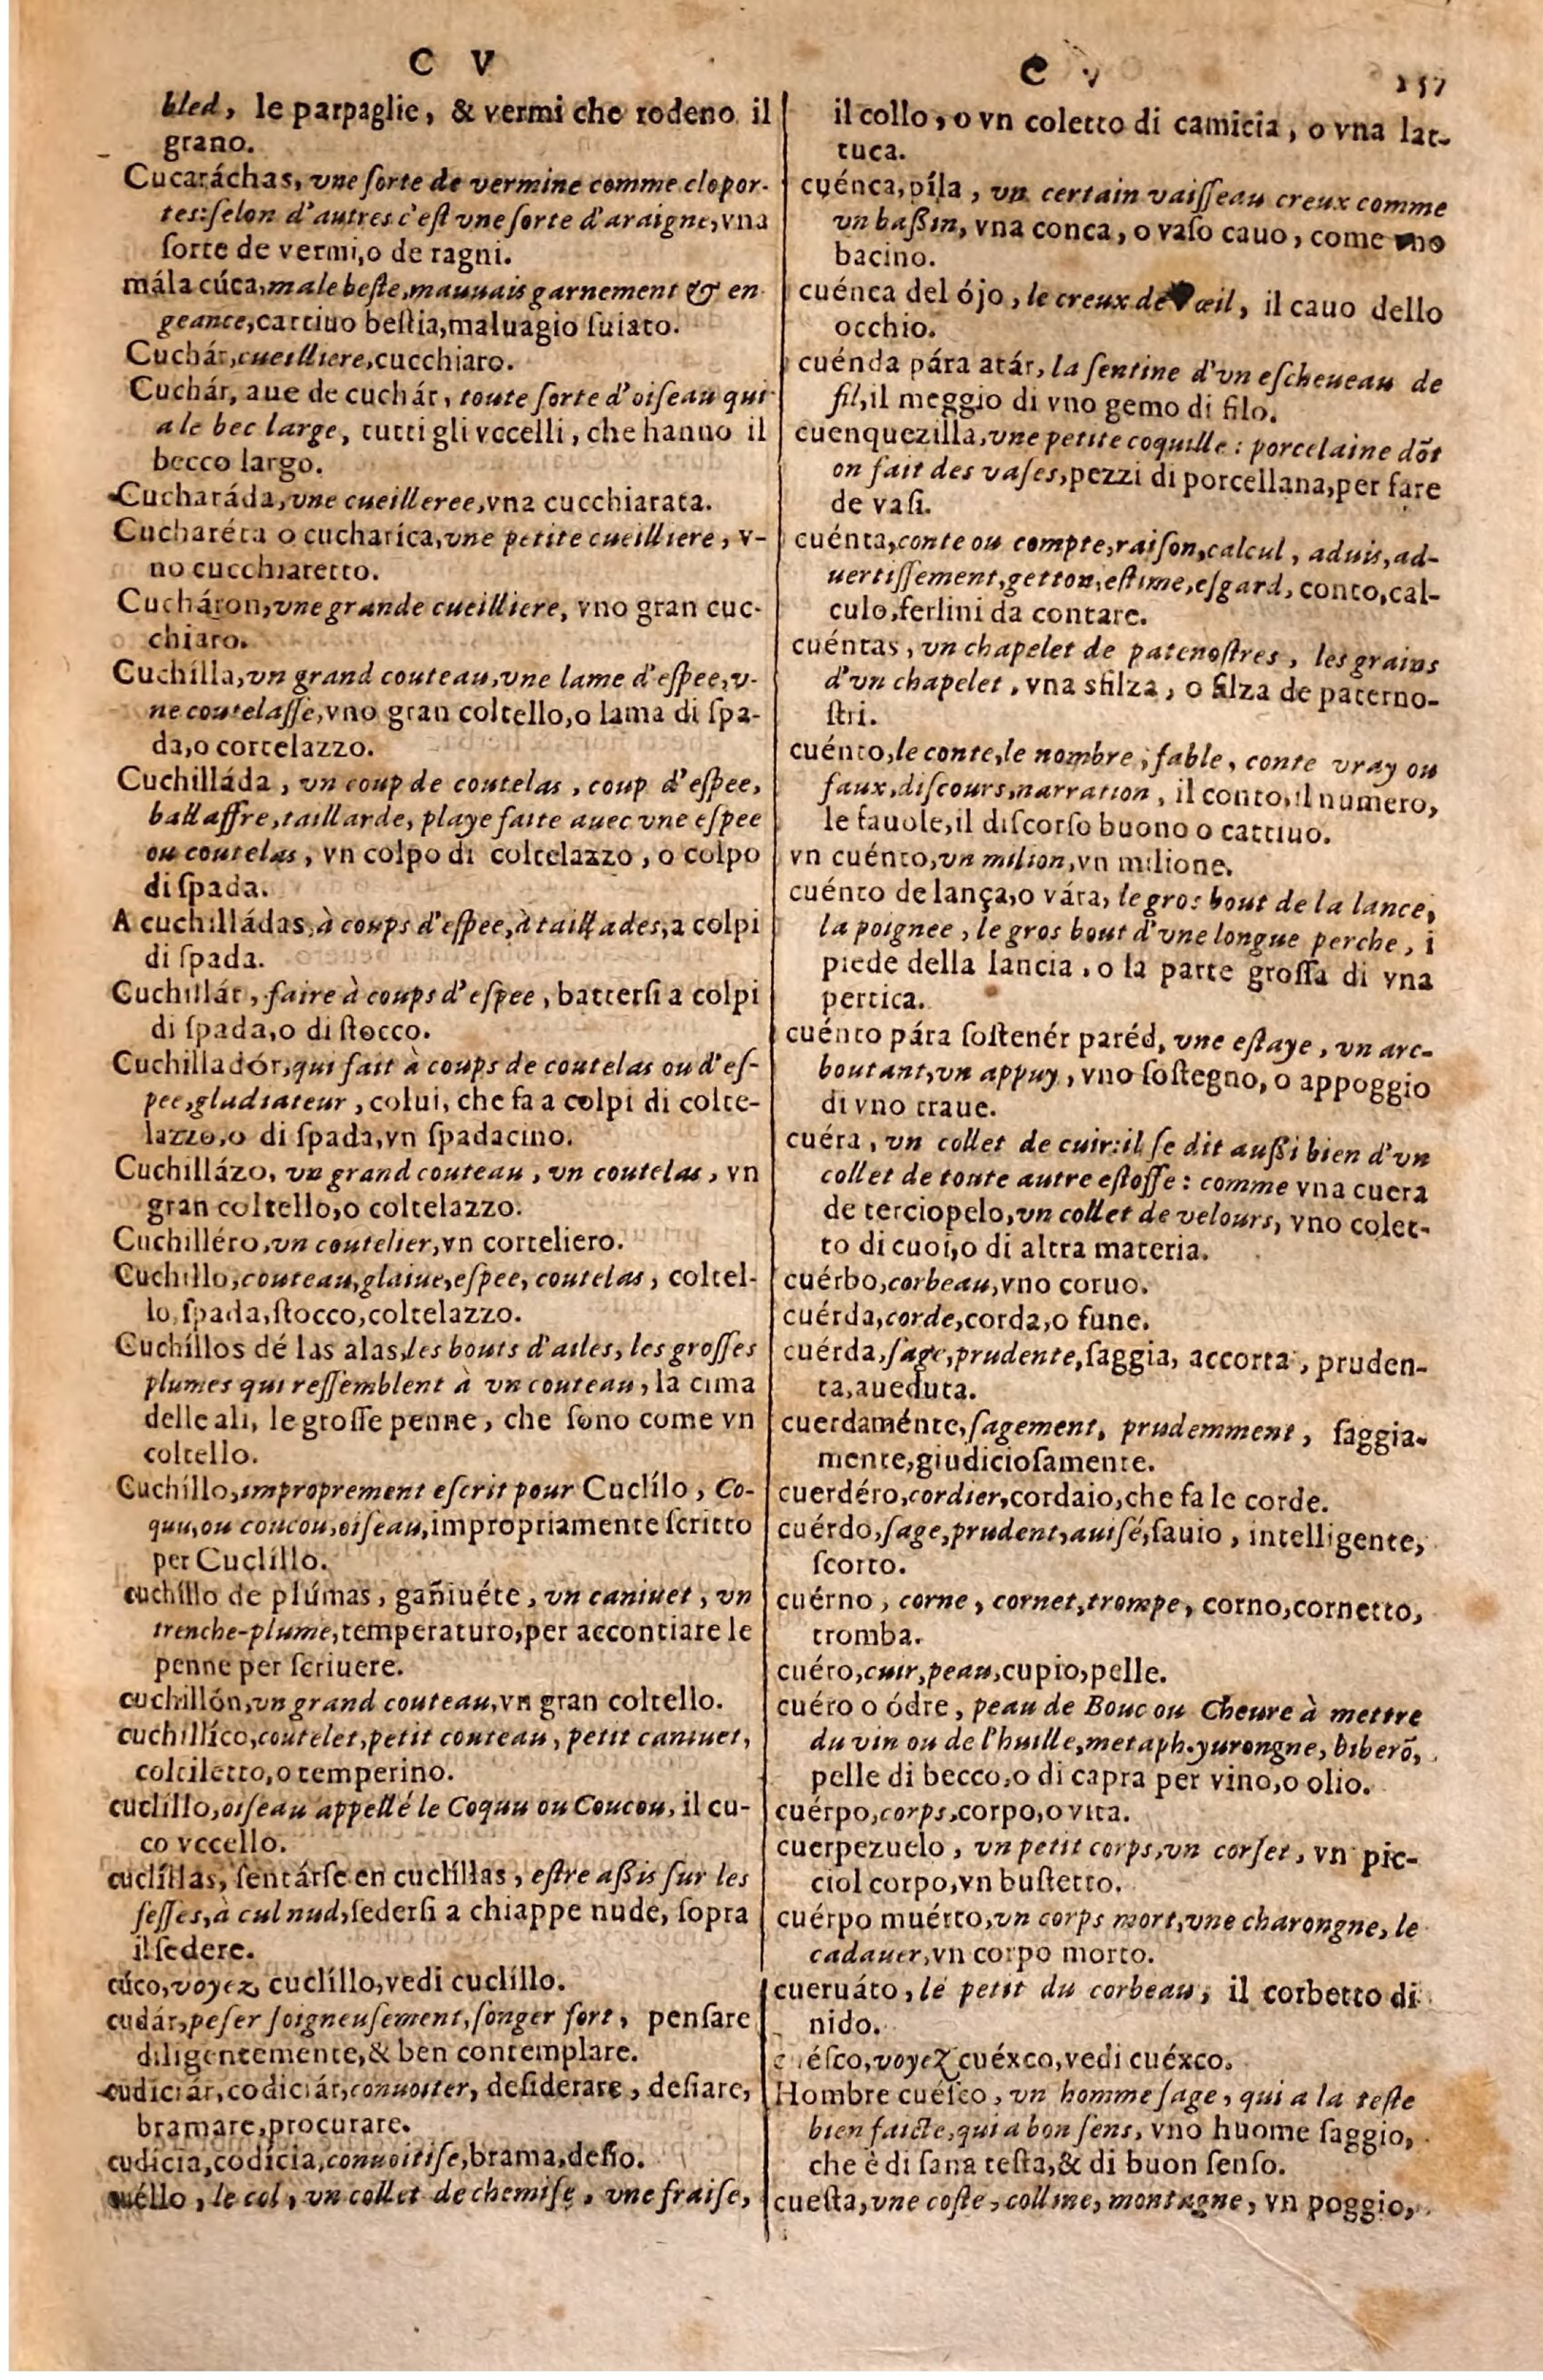 C V
bled, le parpaglie, & vermi che rodeno il
grano.
Cucaráchas, vne ſorte de vermine comme clopor-
tes: ſelon d'autres c'eſt vne ſorte d'araigne, vna
ſorte de vermi, o de ragni.
mála cúca, male beſte, mauuais garnement & en
geance, cattiuo beſtia, maluagio ſuiato.
Cuchár, cueilliere, cucchiaro.
Cuchár, aue de cuchár, toute ſorte d'oiſeau qui
a le bec large, tutti gli vccelli, che hanno il
becco largo.
Cucharáda, vne cueilleree, vna cucchiarata.
Cucharéta o cucharíca, vne petite cueilliere, v-
no cucchiaretto.
Cucháron, vne grande cueilliere, vno gran cuc-
chiaro.
Cuchílla, vn grand couteau, vne lame d'eſpee, v-
ne coutelaſſe, vno gran coltello, o lama di ſpa-
da, o cortelazzo.
Cuchilláda, vn coup de coutelas, coup d'eſpee,
ballaffre, taillarde, playe faite auec vne eſpee
ou coutelas, vn colpo di coltelazzo, o colpo
di ſpada.
A cuchilládas, à coups d'eſpee, à taillades, a colpi
di ſpada.
Cuchillár, faire à coups d'eſpee, batterſi a colpi
di ſpada, o di ſtocco.
Cuchilladór, qui fait à coups de coutelas ou d'eſ-
pee, gladiateur, colui, che fa a colpi di colte-
lazzo, o di ſpada, vn ſpadacino.
Cuchillázo, vn grand couteau, vn coutelas, vn
gran coltello, o coltelazzo.
Cuchilléro, vn coutelier, vn corteliero.
Cuchillo, couteau, glaiue, eſpee, coutelas, coltel-
lo, ſpada, ſtocco, coltelazzo.
Cuchíllos dé las alas, les bouts d'ailes, les groſſes
plumes qui reſſemblent à vn couteau, la cima
delle ali, le groſſe penne, che ſono come vn
coltello.
Cuchíllo, improprement eſcrit pour Cuclílo, Co-
quu, ou coucou, oiſeau, impropriamente ſcritto
per Cuclíllo.
cuchíllo de plúmas, gañiuéte, vn caniuet, vn
trenche-plume, temperaturo, per accontiare le
penne per ſcriuere.
cuchillón, vn grand couteau, vn gran coltello.
cuchillíco, coutelet, petit couteau, petit caniuet,
coltiletto, o temperino.
cuclíllo, oiſeau appellé le Coquu ou Coucou, il cu-
co vccello.
cuclíllas, ſentárſe en cuclíllas, eſtre aſſis ſur les
feſſes, à cul nud, ſederſi a chiappe nude, ſopra
il ſedere.
cúco, voyez cuclíllo, vedi cuclíllo.
cudár, peſer ſoigneuſement, ſonger fort, penſare
diligentemente, & ben contemplare.
cudiciár, codiciár, conuoiter, deſiderare, deſiare,
bramare, procurare.
cudícia, codícia, conuoitiſe, brama, deſio.
cuéllo, le col, vn collet de chemiſe, vne fraiſe,
C V 257
il collo, o vn coletto di camicia, o vna lat-
tuca.
cuénca, píla, vn certain vaiſſeau creux comme
vn baſſin, vna conca, o vaſo cauo, come vno
bacino.
cuénca del ójo, le creux de l'œil, il cauo dello
occhio.
cuénda pára atár, la ſentine d'vn eſcheueau de
fil, il meggio di vno gemo di filo.
cuenquezílla, vne petite coquille: porcelaine dõt
on fait des vaſes, pezzi di porcellana, per fare
de vaſi.
cuénta, conte ou compte, raiſon, calcul, aduis, ad-
uertiſſement, getton, eſtime, eſgard, conto, cal-
culo, ferlini da contare.
cuéntas, vn chapelet de patenoſtres, les grains
d'vn chapelet, vna sfilza, o filza de paterno-
ſtri.
cuénto, le conte, le nombre, fable, conte vray ou
faux, diſcours, narration, il conto, il numero,
le fauole, il diſcorſo buono o cattiuo.
vn cuénto, vn milion, vn milione.
cuénto de lança, o vára, le gros bout de la lance,
la poignee, le gros bout d'vne longue perche, i
piede della lancia, o la parte groſſa di vna
pertica.
cuénto pára ſoſtenér paréd, vne eſtaye, vn arc-
boutant, vn appuy, vno ſoſtegno, o appoggio
di vno traue.
cuéra, vn collet de cuir: il ſe dit auſſi bien d'vn
collet de toute autre eſtoffe: comme vna cuera
de terciopelo, vn collet de velours, vno colet-
to di cuoi, o di altra materia.
cuérbo, corbeau, vno coruo.
cuérda, corde, corda, o fune.
cuérda, ſage, prudente, ſaggia, accorta, pruden-
ta, aueduta.
cuerdaménte, ſagement, prudemment, ſaggia-
mente, giudicioſamente.
cuerdéro, cordier, cordaio, che fa le corde.
cuérdo, ſage, prudent, auiſé, ſauio, intelligente,
ſcorto.
cuérno, corne, cornet, trompe, corno, cornetto,
tromba.
cuéro, cuir, peau, cupio, pelle.
cuéro o ódre, peau de Bouc ou Cheure à mettre
du vin ou de l'huille, metaph. yurongne, biberõ,
pelle di becco, o di capra per vino, o olio.
cuérpo, corps, corpo, o vita.
cuerpezuelo, vn petit corps, vn corſet, vn pic-
ciol corpo, vn buſtetto.
cuérpo muérto, vn corps mort, vne charongne, le
cadauer, vn corpo morto.
cueruáto, le petit du corbeau, il corbetto di
nido.
cuéſco, voyez cuéxco, vedi cuéxco.
Hombre cueſco, vn homme ſage, qui a la teſte
bien faicte, qui a bon ſens, vno huome ſaggio,
che è di ſana teſta, & di buon ſenſo.
cueſta, vne coſte, colline, montagne, vn poggio,